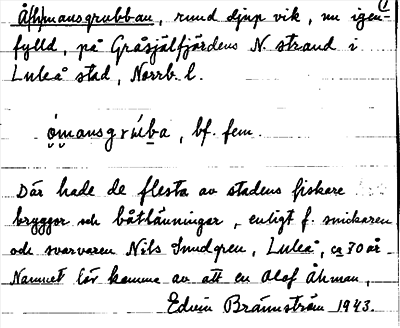 Åhmansgrubban, rund djup vik, nu igen-
fylld, på Gråsjälfjärdens N. strand i
Luleå stad, Norrb. l.
ọ̈mansgruba, bf. fem.
Där hade de flesta av stadens fiskare
bryggor och båtlänningar, enligt f. snickaren
och svarvaren Nils Sundgren, Luleå, ca 70 år.
Namnet lär komma av att en Olof Åhman,
Edvin Brännström 1943.